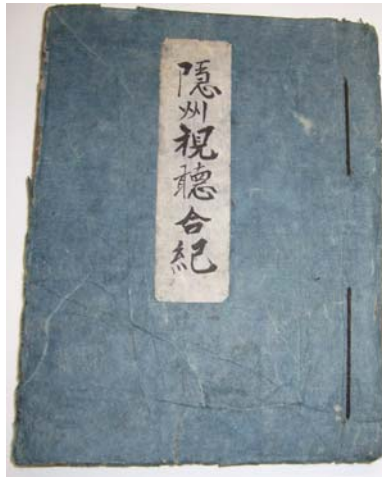 隠州視聴合紀